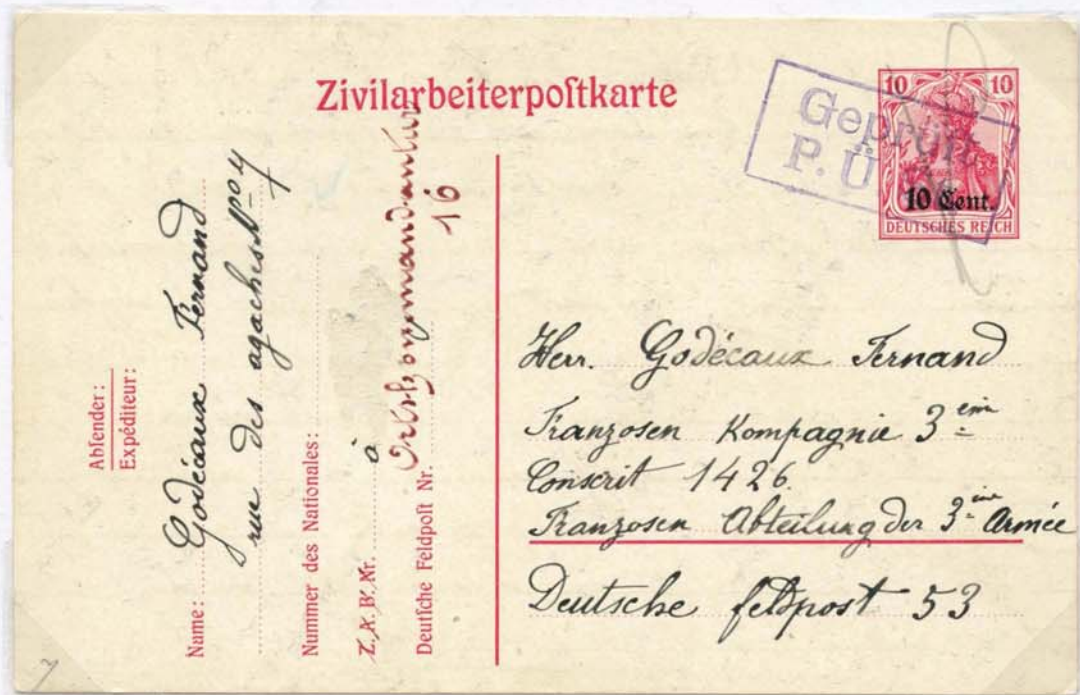 Zivilarbeiterpoſtkarte
Geprüft
P. Ü.
10 10
10 Cent.
DEUTSCHES REICH
Abſender:
Expéditeur:
Name: Godécaux Fernand
rue des agaches Nº 4
Nummer des Nationales:
Z. A. B. Nr. à
Deutſche Feldpoſt Nr. Ortskommandantur
16
Herr. Godécaux Fernand
Franzosen Kompagnie 3 eme
Conscrit 1426.
Franzosen Abteilung der 3 eme Armée
Deutsche feldpost 53